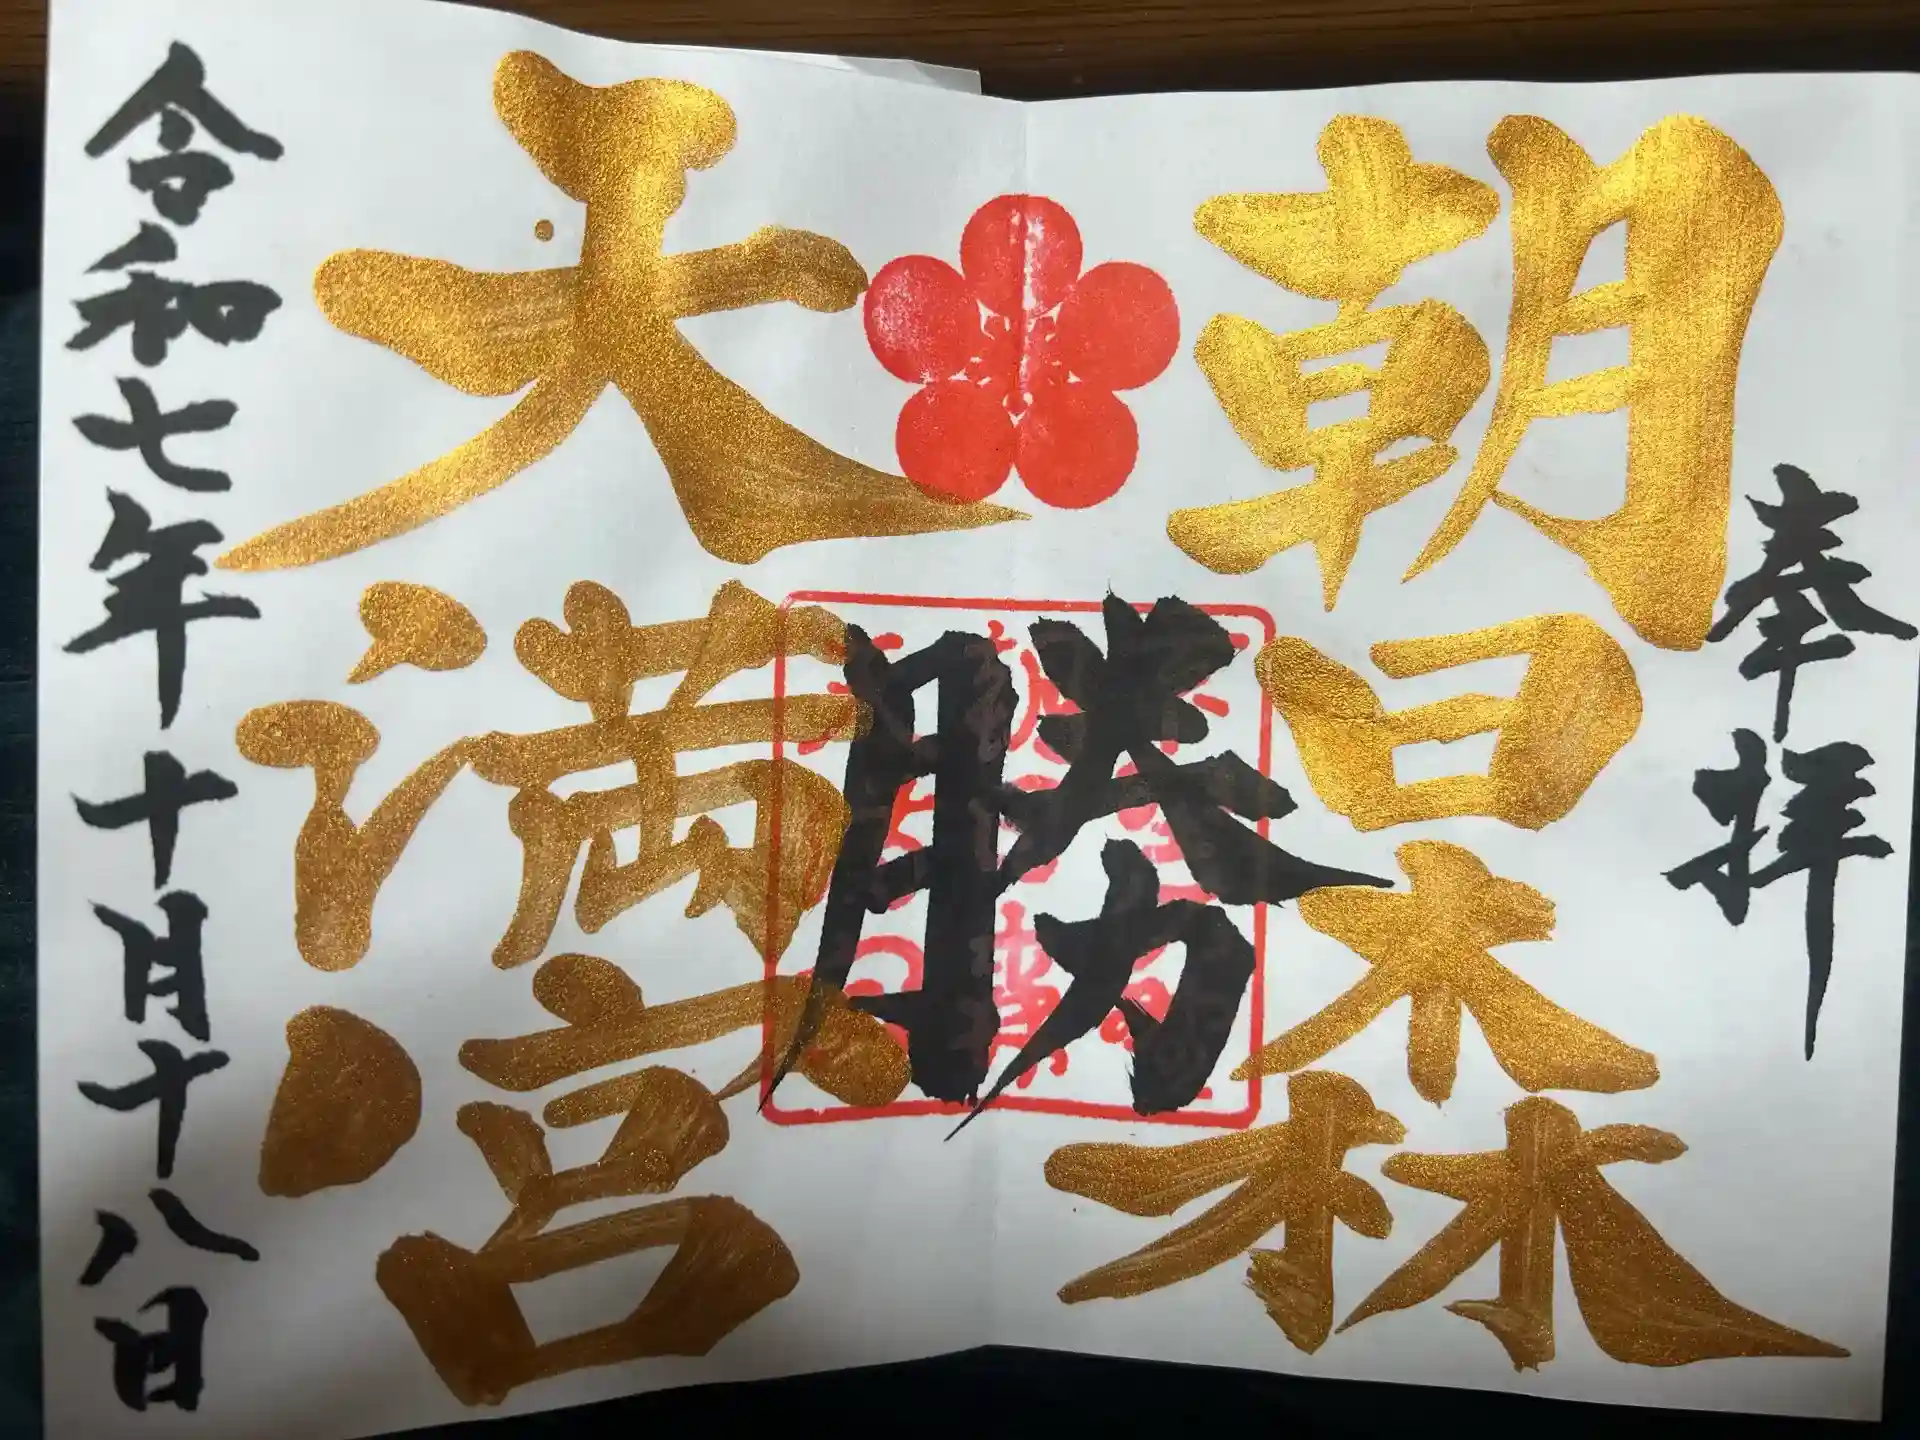 奉拝
朝日森
天満宮
勝
令和七年十月十八日